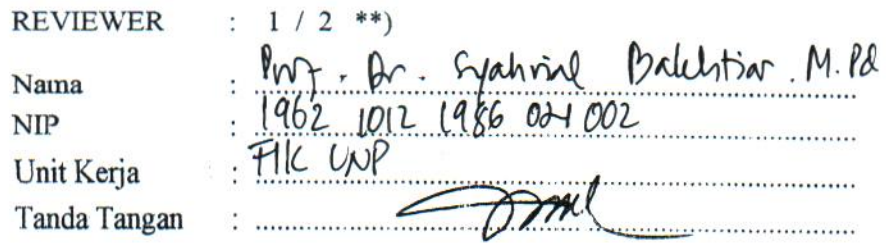 REVIEWER : 1 / 2 **)
Nama : Prof. Dr. Syahrial Bakhtiar. M.Pd
NIP : 1962 1012 1986 021 002
Unit Kerja : FIK UNP
Tanda Tangan :